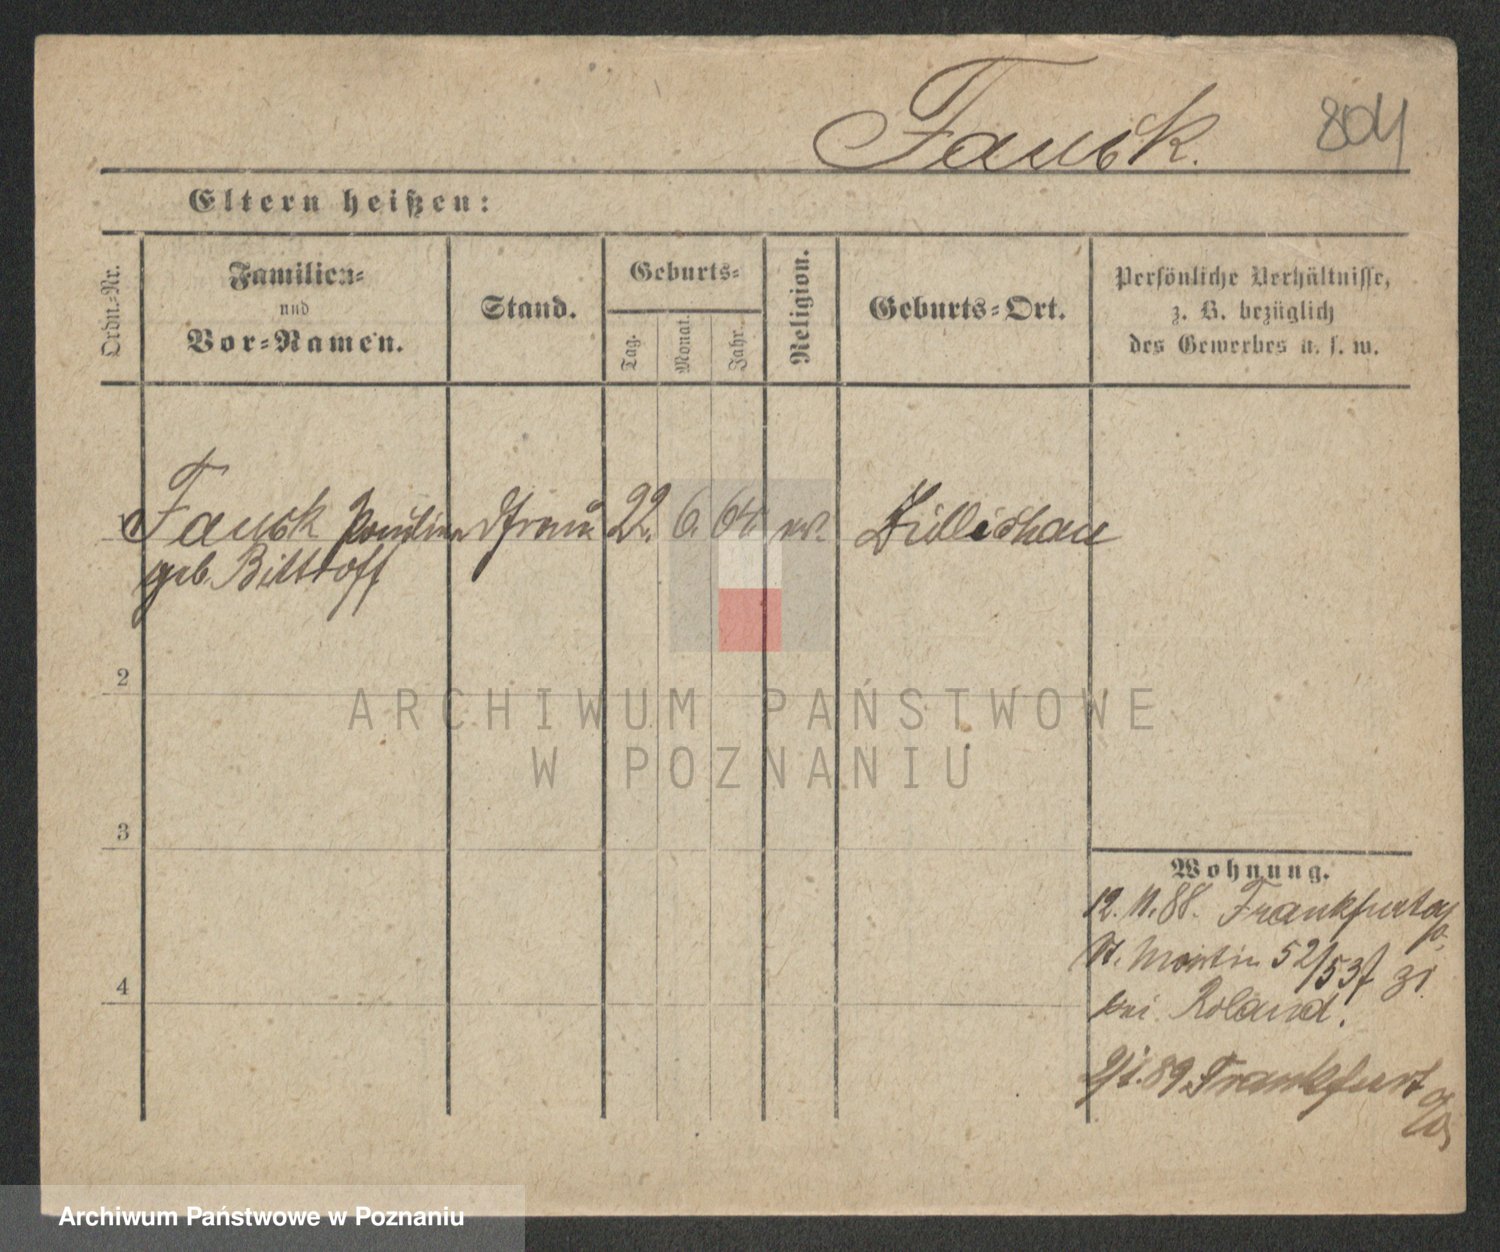 Fausk.
804
Eltern heißen:
Ordn.=Nr.
Familien=
und
Vor=Namen.
Stand.
Geburts=
Tag.
Monat.
Jahr.
Religion.
Geburts=Ort.
Persönliche Verhältnisse,
z. B. bezüglich
des Gewerbes u. s. w.
1 Fausk Pauline Ehfrau 22. 6. 64. ev. Züllichau
geb. Bittroff
2
ARCHIWUM PAŃSTWOWE
W POZNANIU
3
4
Wohnung.
12. 11. 88. Frankfurt a/O.
St. Martin 52/53
bei Roland.
89 Frankfurt a/O
Archiwum Państwowe w Poznaniu